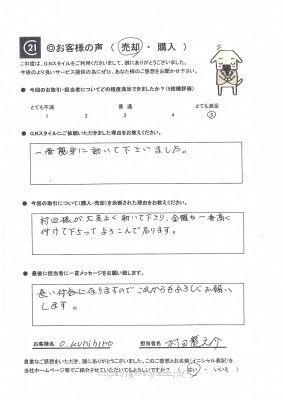 21 ◎お客様の声（ 売却 ・ 購入 ）
この度は、G.Nスタイルをご利用くださいまして、誠にありがとうございました。
今後のより良いサービス提供の為にぜひ、あなた様のご感想をお聞かせ下さい。
● 今回のお取引・担当者についてどの程度満足できましたか？（5段階評価）
とても不満 普通 とても満足
1 2 3 4 5
● G.Nスタイルにご依頼いただきました理由をお教えください。
一番親身に動いて下さいました。
● 今回の取引について（購入・売却）を決断された理由をお教えください。
村田様が大変よく動いて下さり、金額も一番高く
付けて下さってよろこんで居ります。
● 最後に担当者に一言メッセージをお願い致します。
長い付合になりますのでこれからもよろしくお願い
します。
お客様名 O.Kunihiro 担当者名 村田
貴重なご感想をいただき、誠にありがとうございました。このご感想とお名前（イニシャル表記）を
当社ホームページ等でご紹介させていただいてもよろしいですか？（ はい ・ いいえ ）